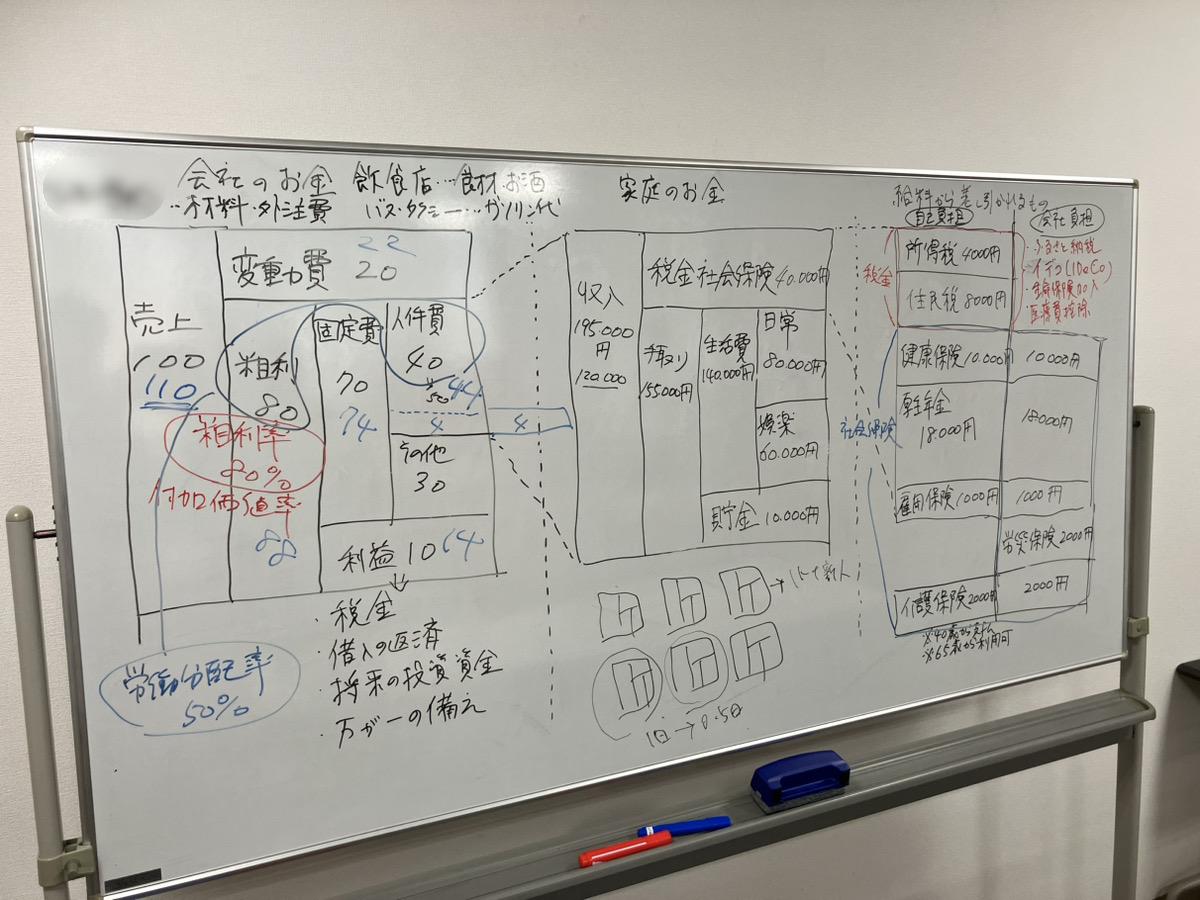 会社のお金 飲食店…食材・お酒
・材料・外注費 バス・タクシー…ガソリン代
売上
100
110
変動費
22
20
粗利
80
粗利率
80%
付加価値率
88
固定費
70
74
人件費
40
44
50
4
4
その他
30
利益 10 14
・税金
・借入の返済
・将来の投資資金
・万が一の備え
労働分配率
50%
家庭のお金
収入
195.000
円
120.000
税金社会保険 40.000円
手取り
155000円
生活費
140.000円
日常
80.000円
娯楽
60.000円
貯金 10.000円
1日→0.5日
給料から差し引かれるもの
自己負担
会社負担
税金
所得税 4000円
住民税 8000円
・ふるさと納税
・イデコ(IDeCo)
・生命保険加入
・医療費控除
社会保険
健康保険 10.000円
10.000円
厚生年金
18.000円
18.000円
雇用保険 1000円
1000円
労災保険 2000円
介護保険 2000円
2000円
※40歳から支払
※65歳から利用可